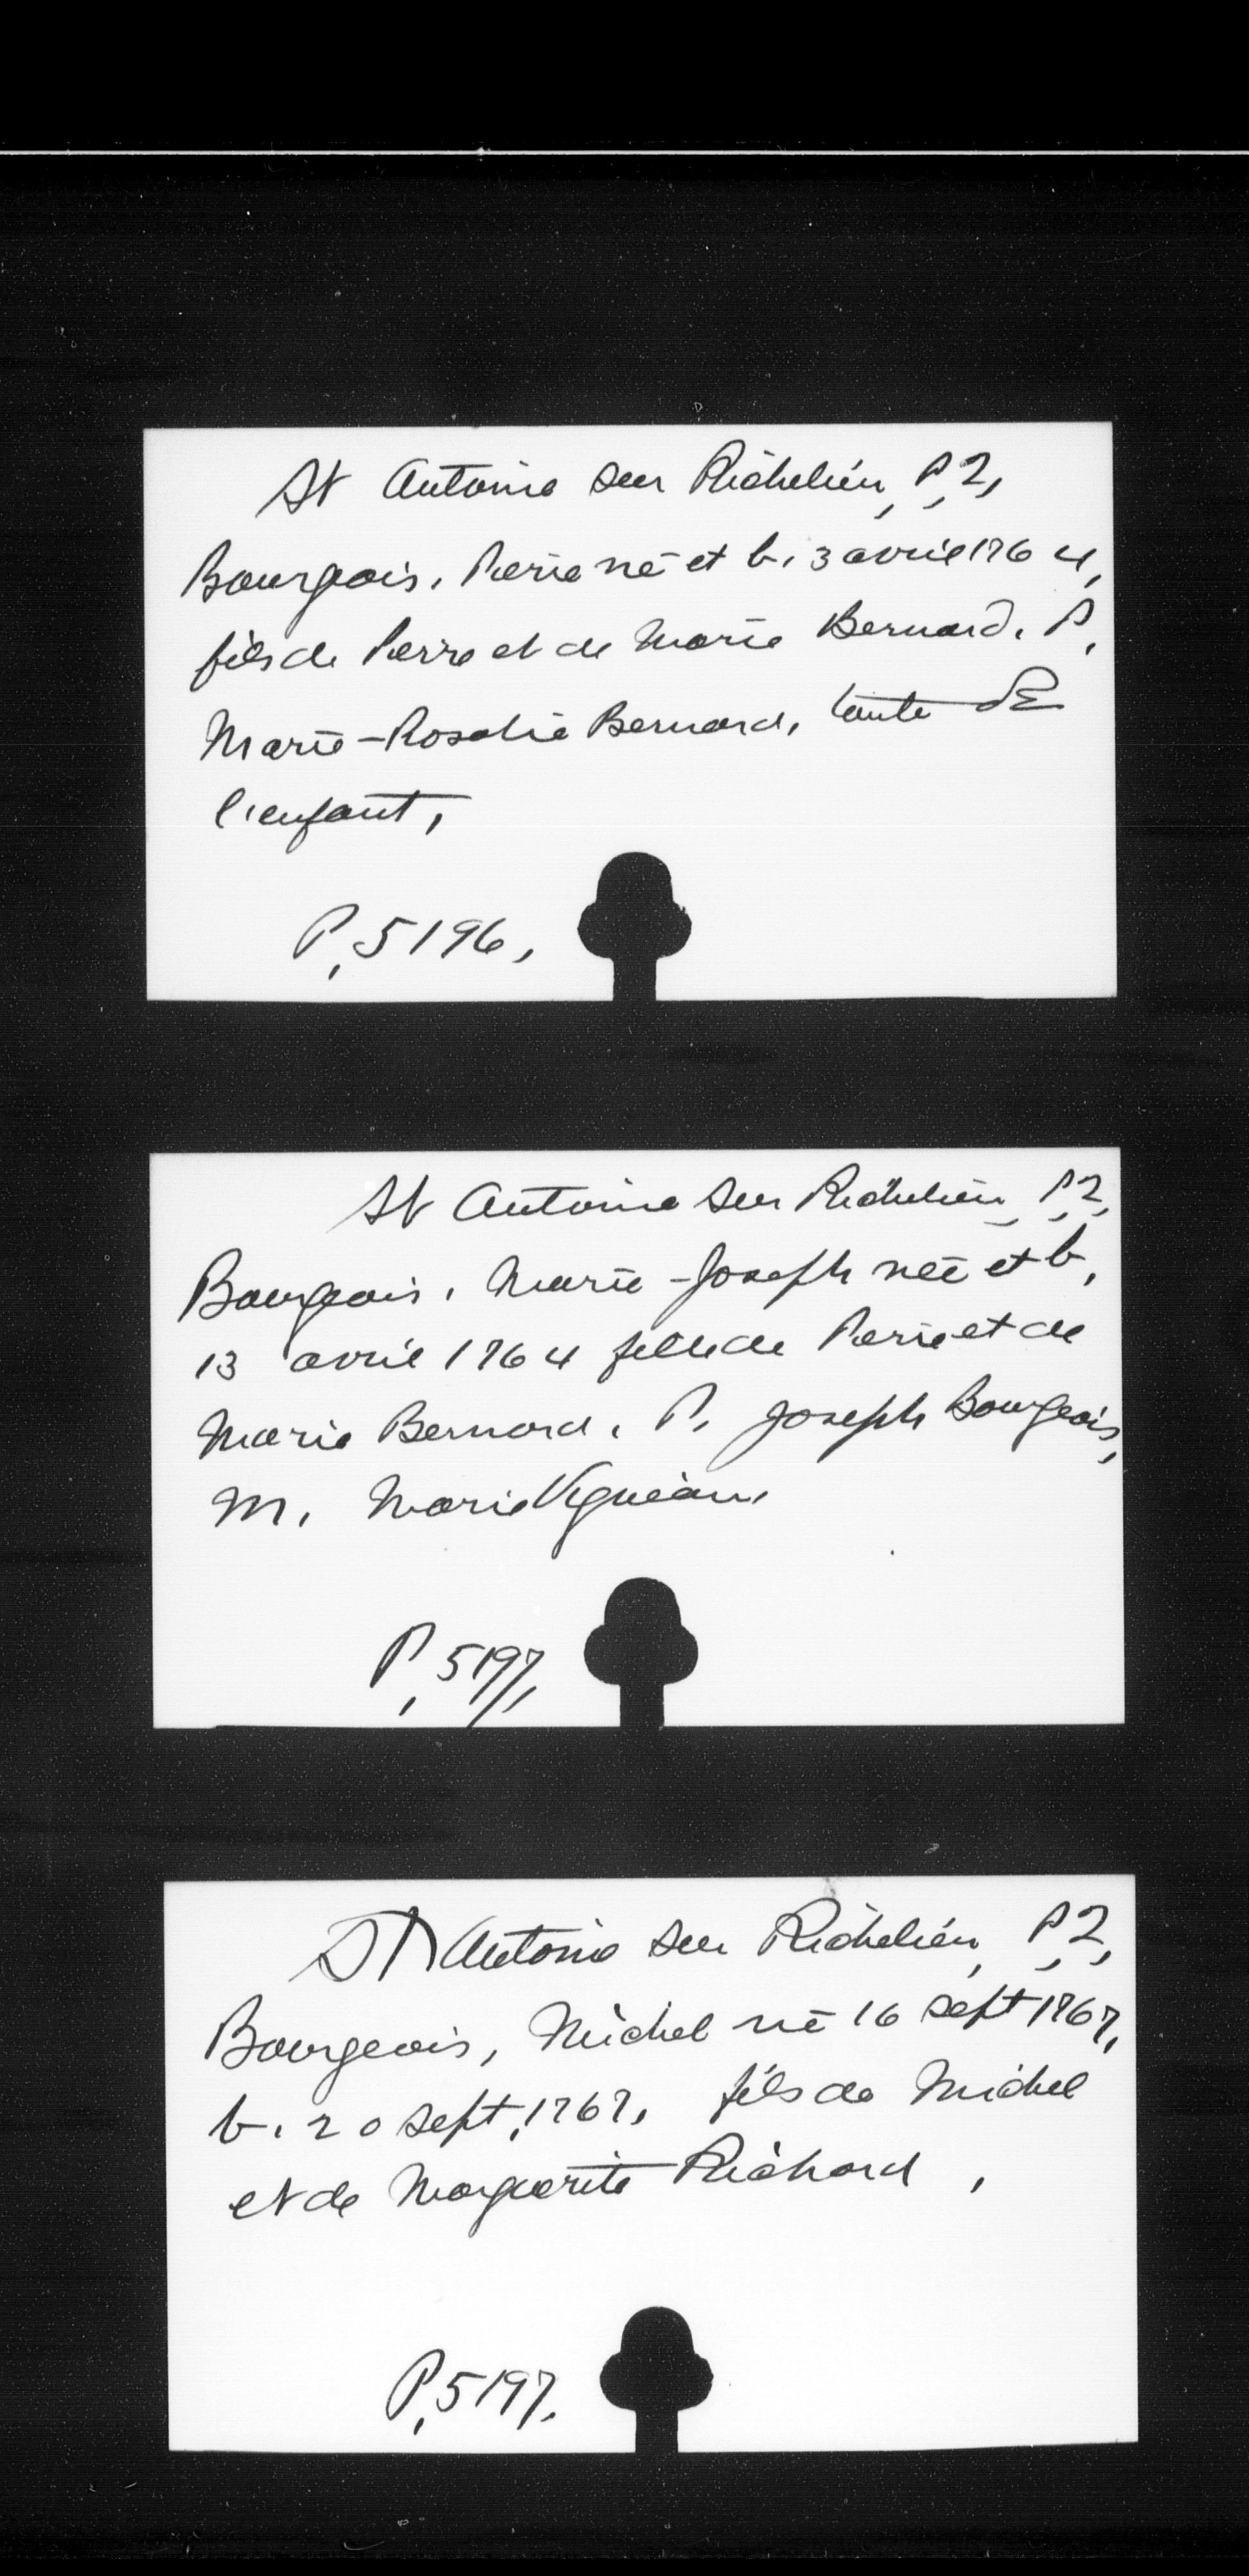 St Antoine sur Richelieu, P. 2,
Bourgeois, Pierre né et b. 3 avril 1764,
fils de Pierre et de Marie Bernard. P.
Marie-Rosalie Bernard, tante de
l'enfant,
P. 5196,
St Antoine sur Richelieu, P. 2,
Bourgeois, Marie-Joseph née et b.
13 avril 1764 fille de Pierre et de
Marie Bernard. P. Joseph Bourgeois,
M. Marie Vigneau.
P. 5197,
St Antoine sur Richelieu, P. 2,
Bourgeois, Michel né 16 sept 1767,
b. 20 sept. 1767, fils de Michel
et de Marguerite Richard,
P. 5197.